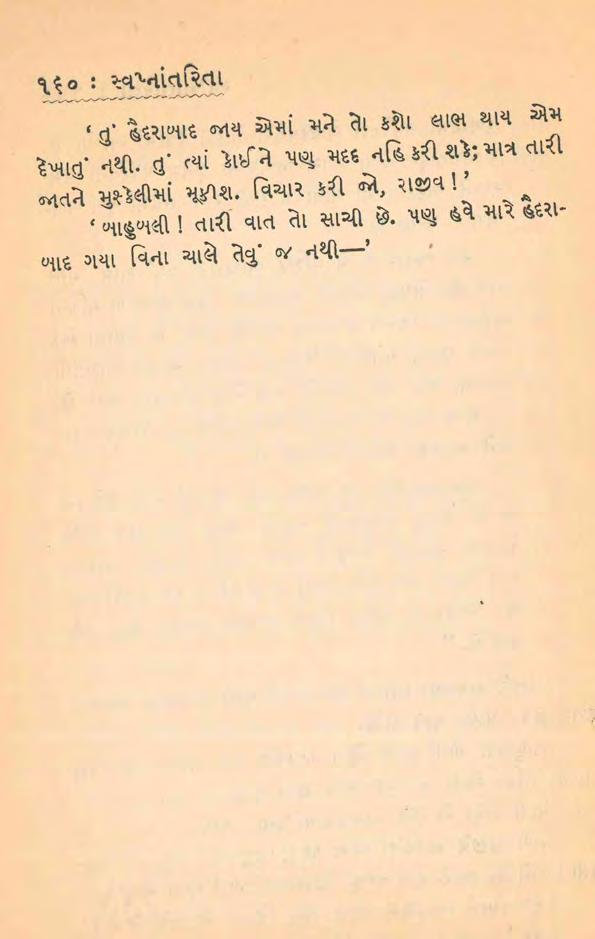 ૧૬૦ : સ્વપ્નાંતરિતા
‘ તું હૈદરાબાદ જાય એમાં મને તો કશો લાભ થાય એમ
દેખાતું નથી. તું ત્યાં કોઈને પણ મદદ નહિ કરી શકે; માત્ર તારી
જાતને મુશ્કેલીમાં મૂકીશ. વિચાર કરી જો, રાજીવ !’
‘ બાહુબલી ! તારી વાત તો સાચી છે. પણ હવે મારે હૈદરા-
બાદ ગયા વિના ચાલે તેવું જ નથી—’